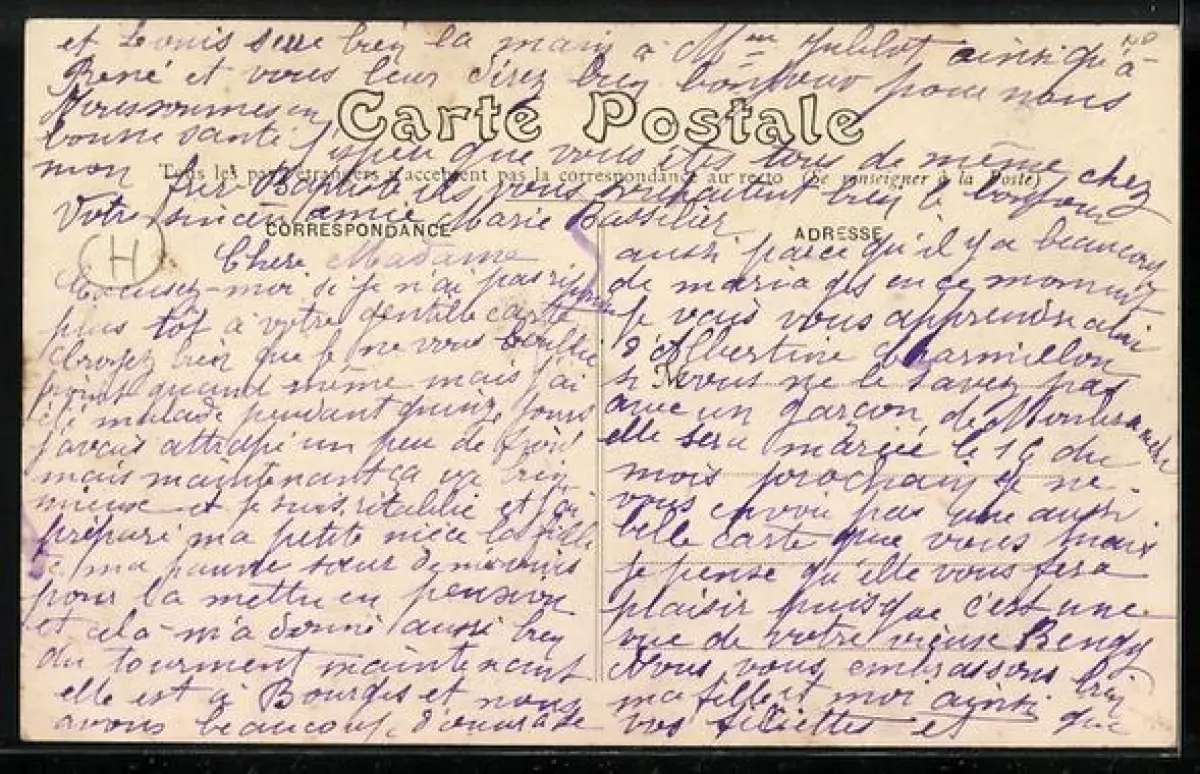 et Louis serre bien la main à Mme Jullot ainsi qu'à
René et vous leur direz bien bonheur pour nous
Nous sommes en
bonne santé j'espère que vous êtes tous de même chez
mon frère Baptiste ils vous souhaitent bien le bonjour
Votre sincère amie Marie Bassilier
Carte Postale
Tous les pays étrangers n'acceptent pas la correspondance au recto (Se renseigner à la Poste)
CORRESPONDANCE
H
Chere Madame
Excusez-moi si je n'ai pas répondu
plus tôt à votre gentille carte
Croyez bien que je ne vous oublie
point quand même mais j'ai
été malade pendant quinze jours
j'avais attrapé un peu de froid
mais maintenant ça va bien
mieux et je suis rétablie et j'ai
préparé ma petite nièce la fille
de ma pauvre sœur
pour la mettre en pension
et cela m'a donné aussi bien
du tourment maintenant
elle est à Bourges et nous
avons beaucoup d'ouvrage
ADRESSE
aussi parce qu'il y a beaucoup
de mariages en ce moment
je vais vous apprendre celui
d'Albertine Charmillon
si vous ne le savez pas
avec un garçon de
elle sera mariée le 16 du
mois prochain je ne
vous envoie pas une aussi
belle carte que vous mais
je pense qu'elle vous fera
plaisir puisque c'est une
vue de votre vieux Bengy
Nous vous embrassons bien
ma fille et moi ainsi que
vos filiettes et